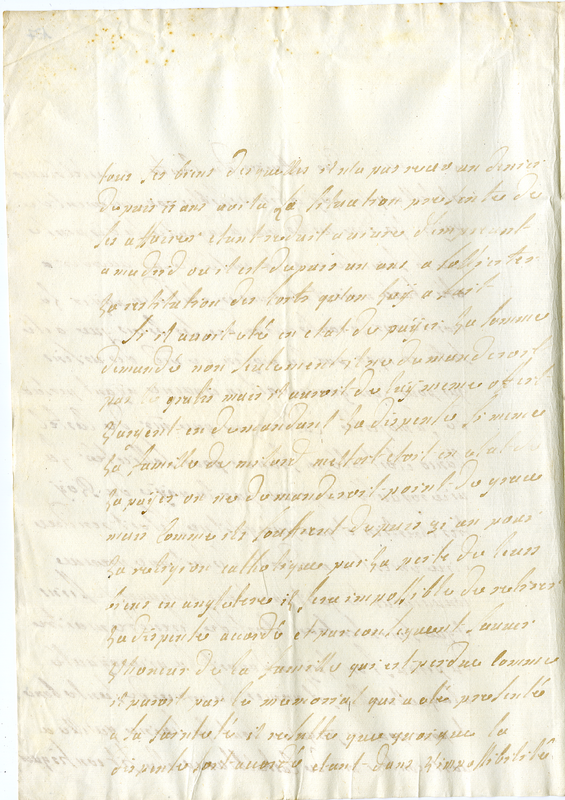 tous ses biens desquelles il n'a pas receu un denier
depuis 11 ans avec la situation presente de
ses affaires etant reduit a vivre d'emprunt
a madrid ou il est depuis un ans a solliciter
la restitution des torts qu'on luy a fait
Si il avoit eté en etat de payer la somme
demandé non seulement il ne demanderoit
pas le gratis mais il auroit de luy meme offert
l'argent en demandant la dispense si meme
la famille de milord melfort etoit en etat de
la payer on ne demanderoit point de grace
mais comme ils souffrent depuis 31 an pour
la religion catholique par la perte de leurs
biens en angleterre il sera impossible de retirer
la dispense accordé et par consequent
l'honeur de la famille qui est perdue comme
il paroit par le memorial qui a eté presenté
a sa sainteté il resulte que quoique la
dispense soit accordé etant dans l'impossibilité